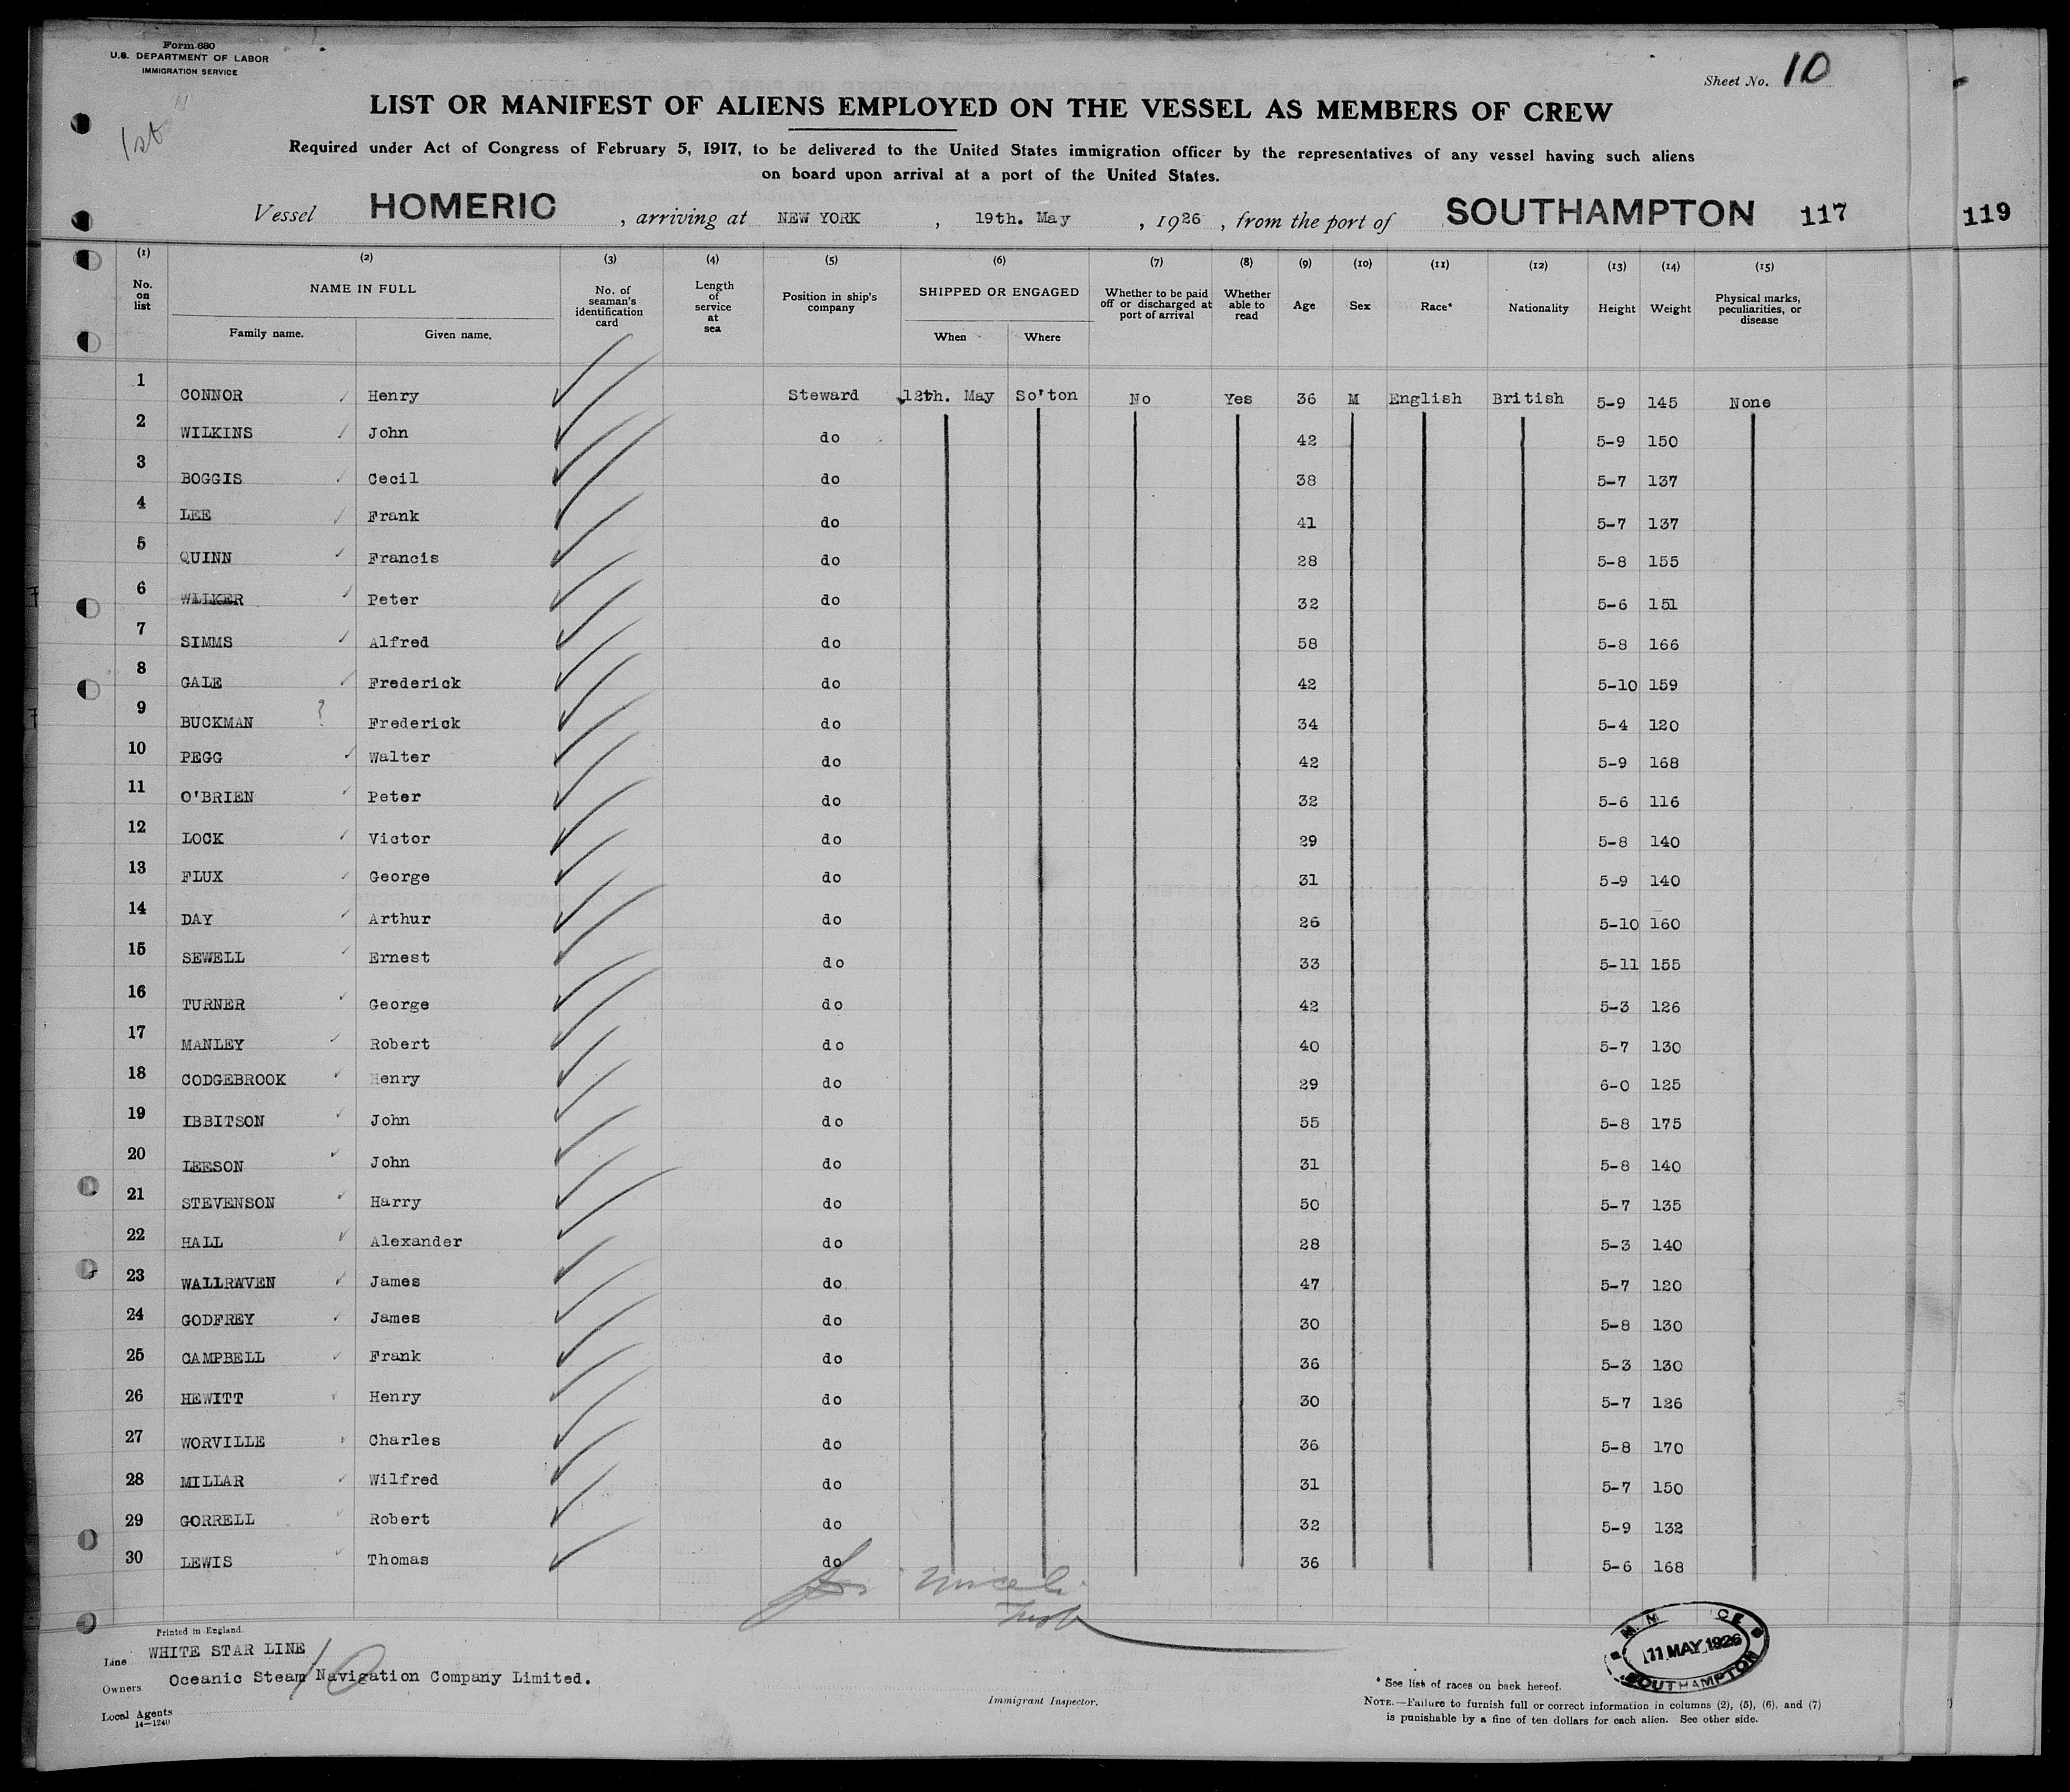 Form 680
U.S. DEPARTMENT OF LABOR
IMMIGRATION SERVICE
1st
Sheet No. 10
LIST OR MANIFEST OF ALIENS EMPLOYED ON THE VESSEL AS MEMBERS OF CREW
Required under Act of Congress of February 5, 1917, to be delivered to the United States immigration officer by the representatives of any vessel having such aliens
on board upon arrival at a port of the United States.
Vessel HOMERIC, arriving at NEW YORK, 19th. May, 1926, from the port of SOUTHAMPTON 117 119
(1) (2) (3) (4) (5) (6) (7) (8) (9) (10) (11) (12) (13) (14) (15)
No. on list NAME IN FULL Family name. Given name. No. of seaman's identification card Length of service at sea Position in ship's company SHIPPED OR ENGAGED When Where Whether to be paid off or discharged at port of arrival Whether able to read Age Sex Race* Nationality Height Weight Physical marks, peculiarities, or disease
1 CONNOR Henry Steward 12th. May So'ton No Yes 36 M English British 5-9 145 None
2 WILKINS John do 42 5-9 150
3 BOGGIS Cecil do 38 5-7 137
4 LEE Frank do 41 5-7 137
5 QUINN Francis do 28 5-8 155
6 WALKER Peter do 32 5-6 151
7 SIMMS Alfred do 58 5-8 166
8 GALE Frederick do 42 5-10 159
9 BUCKMAN ? Frederick do 34 5-4 120
10 PEGG Walter do 42 5-9 168
11 O'BRIEN Peter do 32 5-6 116
12 LOCK Victor do 29 5-8 140
13 FLUX George do 31 5-9 140
14 DAY Arthur do 26 5-10 160
15 SEWELL Ernest do 33 5-11 155
16 TURNER George do 42 5-3 126
17 MANLEY Robert do 40 5-7 130
18 CODGEBROOK Henry do 29 6-0 125
19 IBBITSON John do 55 5-8 175
20 LEESON John do 31 5-8 140
21 STEVENSON Harry do 50 5-7 135
22 HALL Alexander do 28 5-3 140
23 WALLRAVEN James do 47 5-7 120
24 GODFREY James do 30 5-8 130
25 CAMPBELL Frank do 36 5-3 130
26 HEWITT Henry do 30 5-7 126
27 WORVILLE Charles do 36 5-8 170
28 MILLAR Wilfred do 31 5-7 150
29 GORRELL Robert do 32 5-9 132
30 LEWIS Thomas do 36 5-6 168
Printed in England.
Line WHITE STAR LINE
Owners Oceanic Steam Navigation Company Limited.
10
Local Agents
14-1240
Immigrant Inspector.
11 MAY 1926
SOUTHAMPTON
* See list of races on back hereof.
NOTE.—Failure to furnish full or correct information in columns (2), (5), (6), and (7)
is punishable by a fine of ten dollars for each alien. See other side.